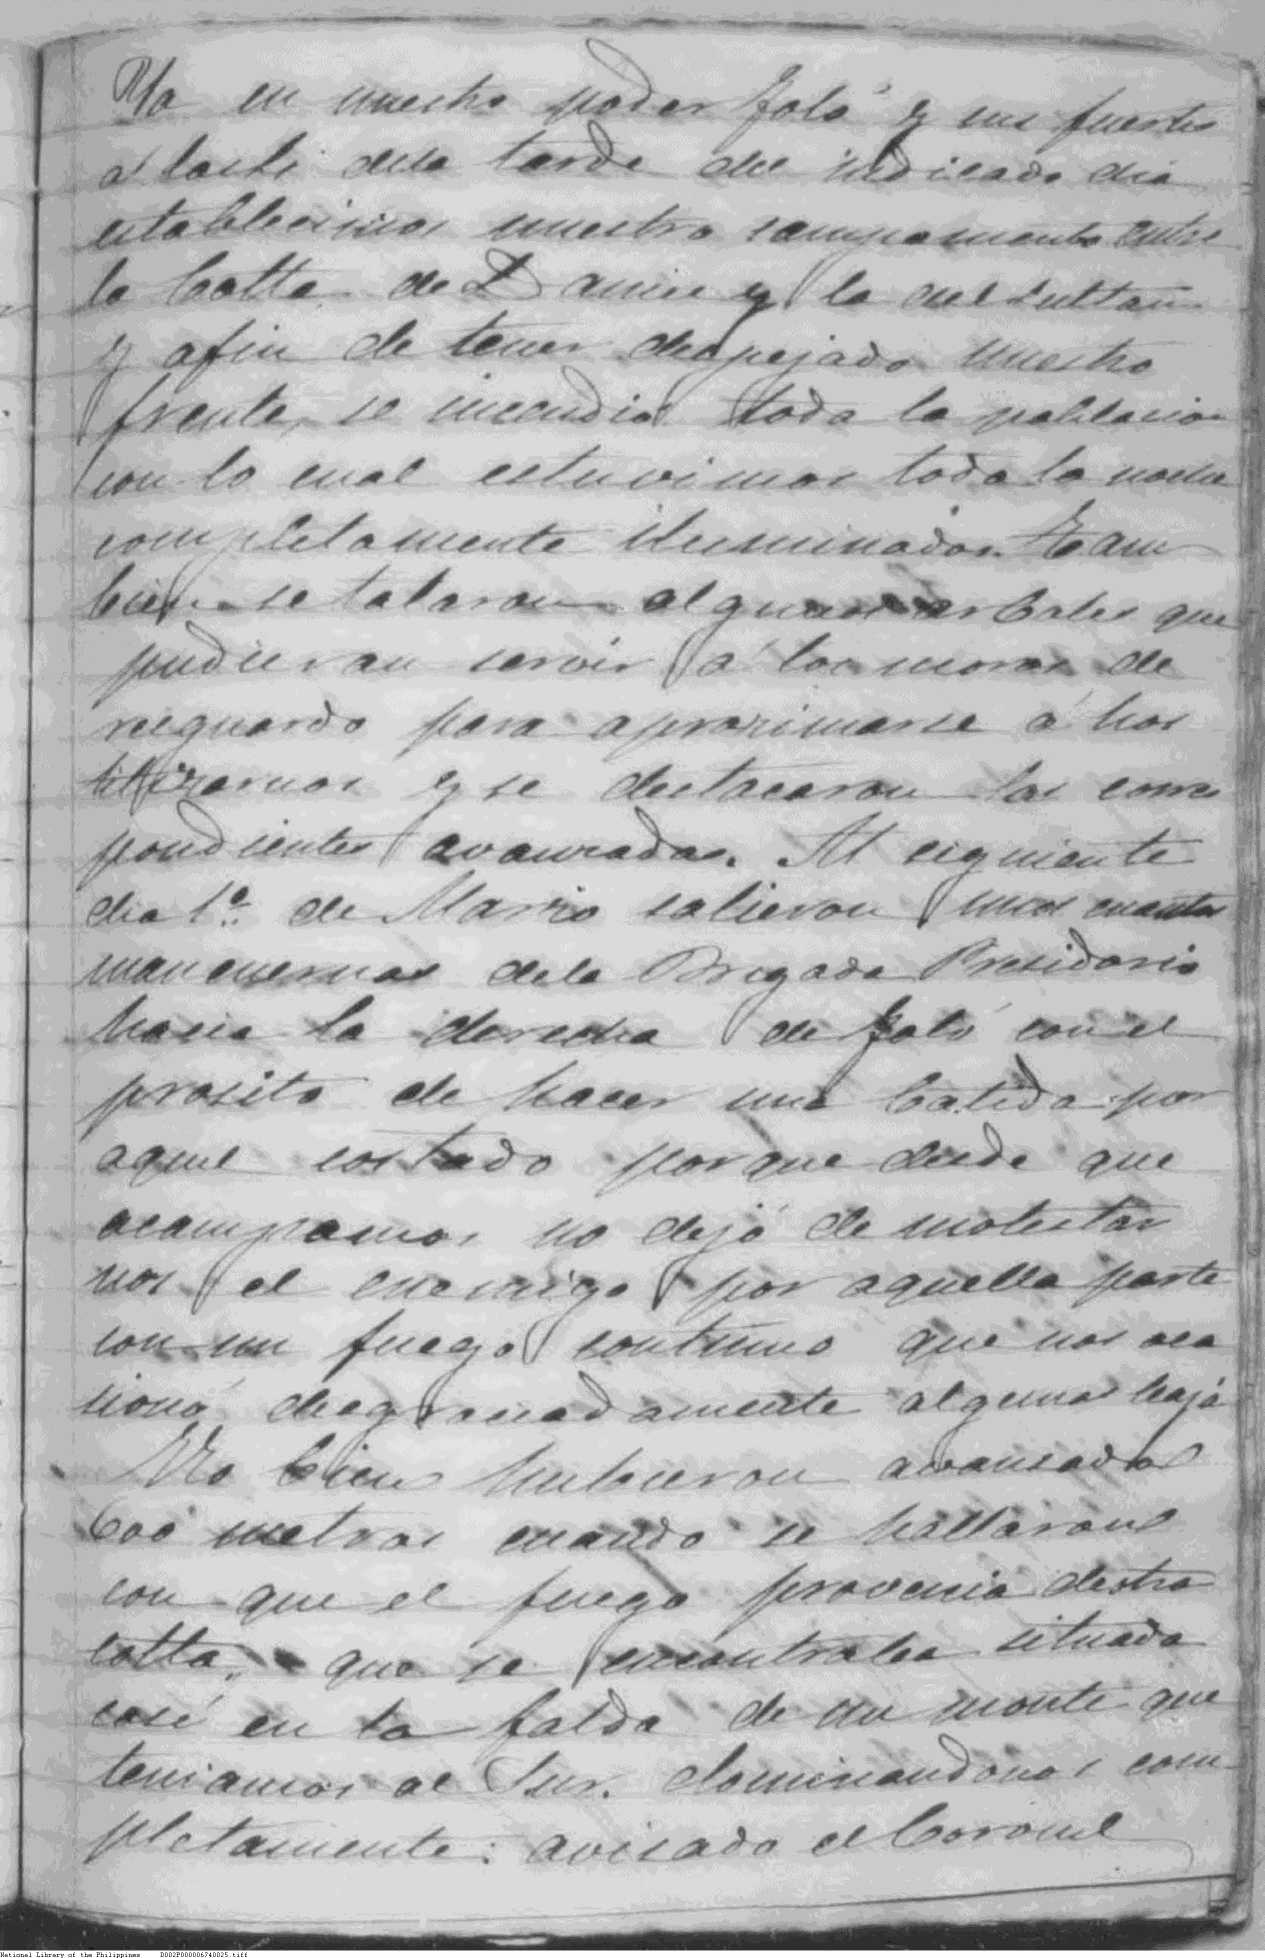 Ya en nuestro poder Joló y sus fuertes
á las seis dela tarde del indicado dia
establecimos nuestro campamento entre
la Cotta de Daniel y la del Sultan
y afin de tener despejado nuestro
frente, se incendió toda la poblacion
con lo cual estuvimos toda la noche
completamente iluminados. Tam
bien se talaron algunos arboles que
pudieran servir á los moros de
resguardo para aproximarse á hos
tilizarnos y se destacaron las corres
pondientes avanzadas. Al siguiente
dia 1º. de Marzo salieron unas cuantas
mancuernas dela Brigada Presidaria
hacia la derecha de Joló con el
prosito de hacer una batida por
aquel costado porque desde que
acampamos no dejó de molestar
nos el enemigo por aquella parte
con un fuego continuo que nos oca
sionó desgraciadamente algunas bajas
No bien hubieron avanzado
600 metros cuando se hallaron
con que el fuego provenia de otra
cotta, que se encontraba situada
casi en la falda de un monte que
teniamos al Sur. dominandonos com
pletamente: avisado el Coronel
National Library of the Philippines D002P000006740025.tiff